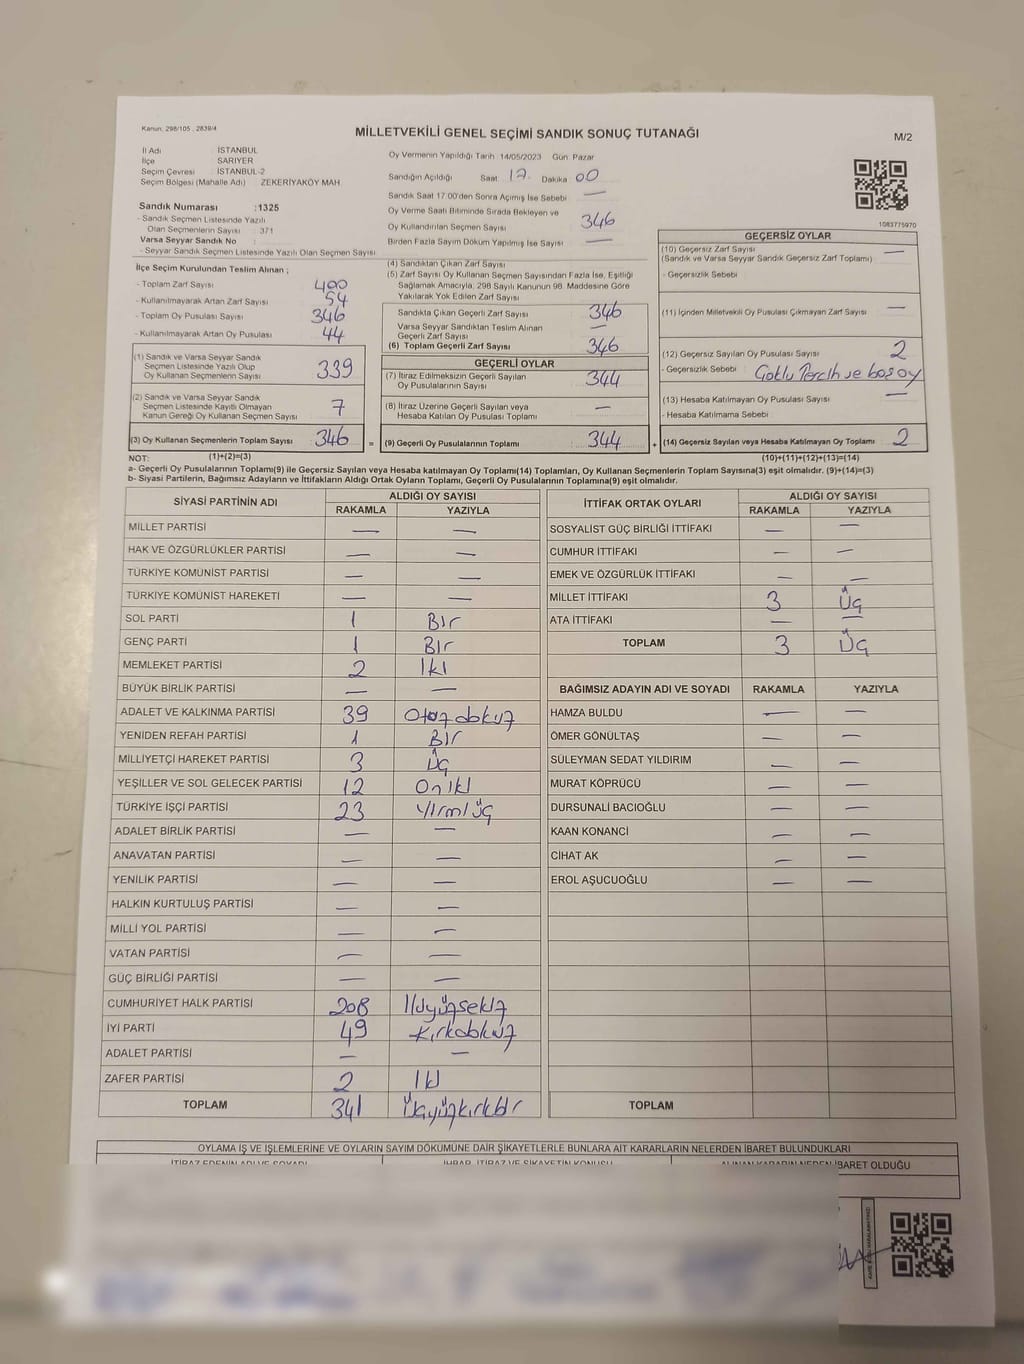 Kanun: 298/105 , 2839/4
MİLLETVEKİLİ GENEL SEÇİMİ SANDIK SONUÇ TUTANAĞI
M/2
İl Adı : İSTANBUL
İlçe : SARIYER
Seçim Çevresi : İSTANBUL-2
Seçim Bölgesi (Mahalle Adı) : ZEKERİYAKÖY MAH.
Sandık Numarası :1325
- Sandık Seçmen Listesinde Yazılı
Olan Seçmenlerin Sayısı : 371
Varsa Seyyar Sandık No :
- Seyyar Sandık Seçmen Listesinde Yazılı Olan Seçmen Sayısı
Oy Vermenin Yapıldığı Tarih 14/05/2023 Gün: Pazar
Sandığın Açıldığı Saat: 17 Dakika 00
Sandık Saat 17:00'den Sonra Açılmış İse Sebebi —
Oy Verme Saati Bitiminde Sırada Bekleyen ve
Oy Kullandırılan Seçmen Sayısı 346
Birden Fazla Sayım Döküm Yapılmış İse Sayısı —
1083775970
İlçe Seçim Kurulundan Teslim Alınan ;
- Toplam Zarf Sayısı 400
- Kullanılmayarak Artan Zarf Sayısı 54
- Toplam Oy Pusulası Sayısı 346
- Kullanılmayarak Artan Oy Pusulası 44
(1) Sandık ve Varsa Seyyar Sandık
Seçmen Listesinde Yazılı Olup
Oy Kullanan Seçmenlerin Sayısı 339
(2) Sandık ve Varsa Seyyar Sandık
Seçmen Listesinde Kayıtlı Olmayan
Kanun Gereği Oy Kullanan Seçmen Sayısı 7
(3) Oy Kullanan Seçmenlerin Toplam Sayısı 346 =
(1)+(2)=(3)
(4) Sandıktan Çıkan Zarf Sayısı
(5) Zarf Sayısı Oy Kullanan Seçmen Sayısından Fazla İse, Eşitliği
Sağlamak Amacıyla, 298 Sayılı Kanunun 98. Maddesine Göre
Yakılarak Yok Edilen Zarf Sayısı
Sandıkta Çıkan Geçerli Zarf Sayısı 346
Varsa Seyyar Sandıktan Teslim Alınan
Geçerli Zarf Sayısı —
(6) Toplam Geçerli Zarf Sayısı 346
GEÇERLİ OYLAR
(7) İtiraz Edilmeksizin Geçerli Sayılan
Oy Pusulalarının Sayısı 344
(8) İtiraz Üzerine Geçerli Sayılan veya
Hesaba Katılan Oy Pusulaları Toplamı —
(9) Geçerli Oy Pusulalarının Toplamı 344 +
GEÇERSİZ OYLAR
(10) Geçersiz Zarf Sayısı —
(Sandık ve Varsa Seyyar Sandık Geçersiz Zarf Toplamı)
- Geçersizlik Sebebi
(11) İçinden Milletvekili Oy Pusulası Çıkmayan Zarf Sayısı —
(12) Geçersiz Sayılan Oy Pusulası Sayısı 2
- Geçersizlik Sebebi Çoklu Tercih ve boş oy
(13) Hesaba Katılmayan Oy Pusulası Sayısı —
- Hesaba Katılmama Sebebi
(14) Geçersiz Sayılan veya Hesaba Katılmayan Oy Toplamı 2
(10)+(11)+(12)+(13)=(14)
NOT:
a- Geçerli Oy Pusulalarının Toplamı(9) ile Geçersiz Sayılan veya Hesaba katılmayan Oy Toplamı(14) Toplamları, Oy Kullanan Seçmenlerin Toplam Sayısına(3) eşit olmalıdır. (9)+(14)=(3)
b- Siyasi Partilerin, Bağımsız Adayların ve İttifakların Aldığı Ortak Oyların Toplamı, Geçerli Oy Pusulalarının Toplamına(9) eşit olmalıdır.
SİYASİ PARTİNİN ADI ALDIĞI OY SAYISI
RAKAMLA YAZIYLA
MİLLET PARTİSİ — —
HAK VE ÖZGÜRLÜKLER PARTİSİ — —
TÜRKİYE KOMÜNİST PARTİSİ — —
TÜRKİYE KOMÜNİST HAREKETİ — —
SOL PARTİ 1 Bir
GENÇ PARTİ 1 Bir
MEMLEKET PARTİSİ 2 İki
BÜYÜK BİRLİK PARTİSİ — —
ADALET VE KALKINMA PARTİSİ 39 Otuzdokuz
YENİDEN REFAH PARTİSİ 1 Bir
MİLLİYETÇİ HAREKET PARTİSİ 3 Üç
YEŞİLLER VE SOL GELECEK PARTİSİ 12 Oniki
TÜRKİYE İŞÇİ PARTİSİ 23 Yirmiüç
ADALET BİRLİK PARTİSİ — —
ANAVATAN PARTİSİ — —
YENİLİK PARTİSİ — —
HALKIN KURTULUŞ PARTİSİ — —
MİLLİ YOL PARTİSİ — —
VATAN PARTİSİ — —
GÜÇ BİRLİĞİ PARTİSİ — —
CUMHURİYET HALK PARTİSİ 208 İkiyüzsekiz
İYİ PARTİ 49 Kırkdokuz
ADALET PARTİSİ — —
ZAFER PARTİSİ 2 İki
TOPLAM 341 Üçyüzkırkbir
İTTİFAK ORTAK OYLARI ALDIĞI OY SAYISI
RAKAMLA YAZIYLA
SOSYALİST GÜÇ BİRLİĞİ İTTİFAKI — —
CUMHUR İTTİFAKI — —
EMEK VE ÖZGÜRLÜK İTTİFAKI — —
MİLLET İTTİFAKI 3 Üç
ATA İTTİFAKI — —
TOPLAM 3 Üç
BAĞIMSIZ ADAYIN ADI VE SOYADI RAKAMLA YAZIYLA
HAMZA BULDU — —
ÖMER GÖNÜLTAŞ — —
SÜLEYMAN SEDAT YILDIRIM — —
MURAT KÖPRÜCÜ — —
DURSUNALİ BACIOĞLU — —
KAAN KONANCİ — —
CİHAT AK — —
EROL AŞUCUOĞLU — —
TOPLAM
OYLAMA İŞ VE İŞLEMLERİNE VE OYLARIN SAYIM DÖKÜMÜNE DAİR ŞİKAYETLERLE BUNLARA AİT KARARLARIN NELERDEN İBARET BULUNDUKLARI
İTİRAZ EDENİN ADI VE SOYADI İHBAR, İTİRAZ VE ŞİKAYETİN KONUSU ALINAN KARARIN NEDEN İBARET OLDUĞU